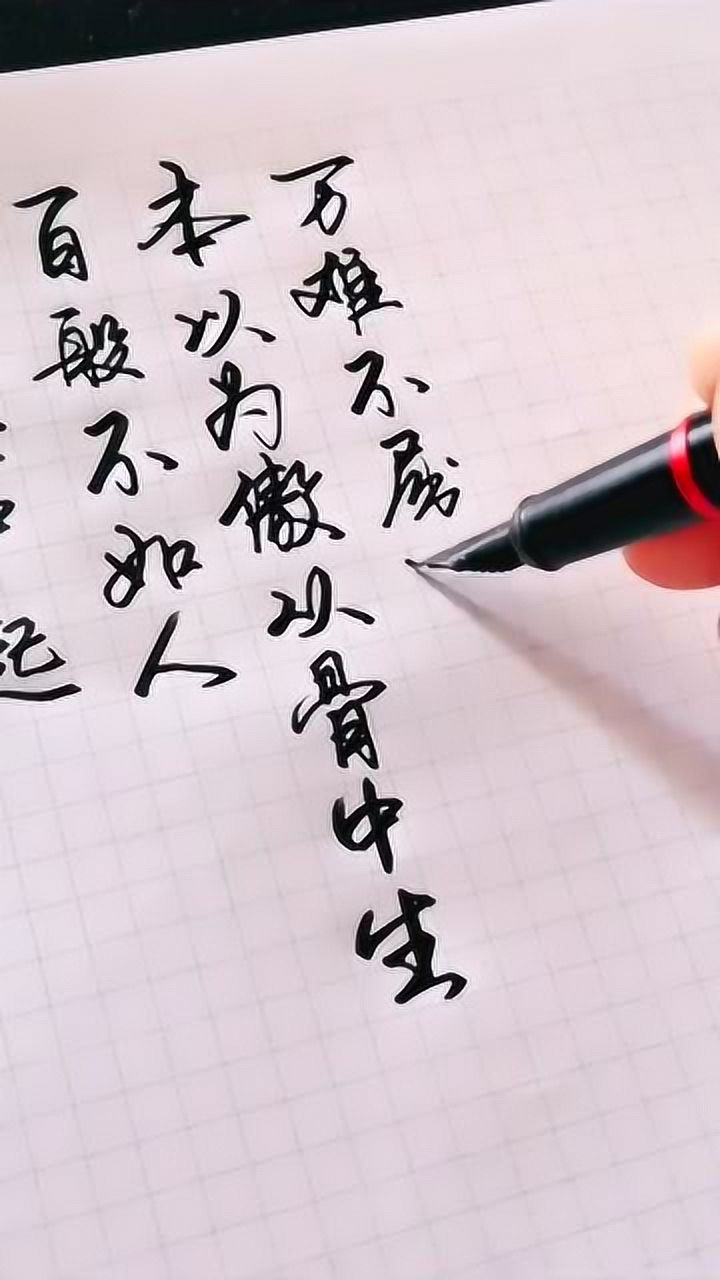 百般不如人
本以为傲从骨中生
万难不屈